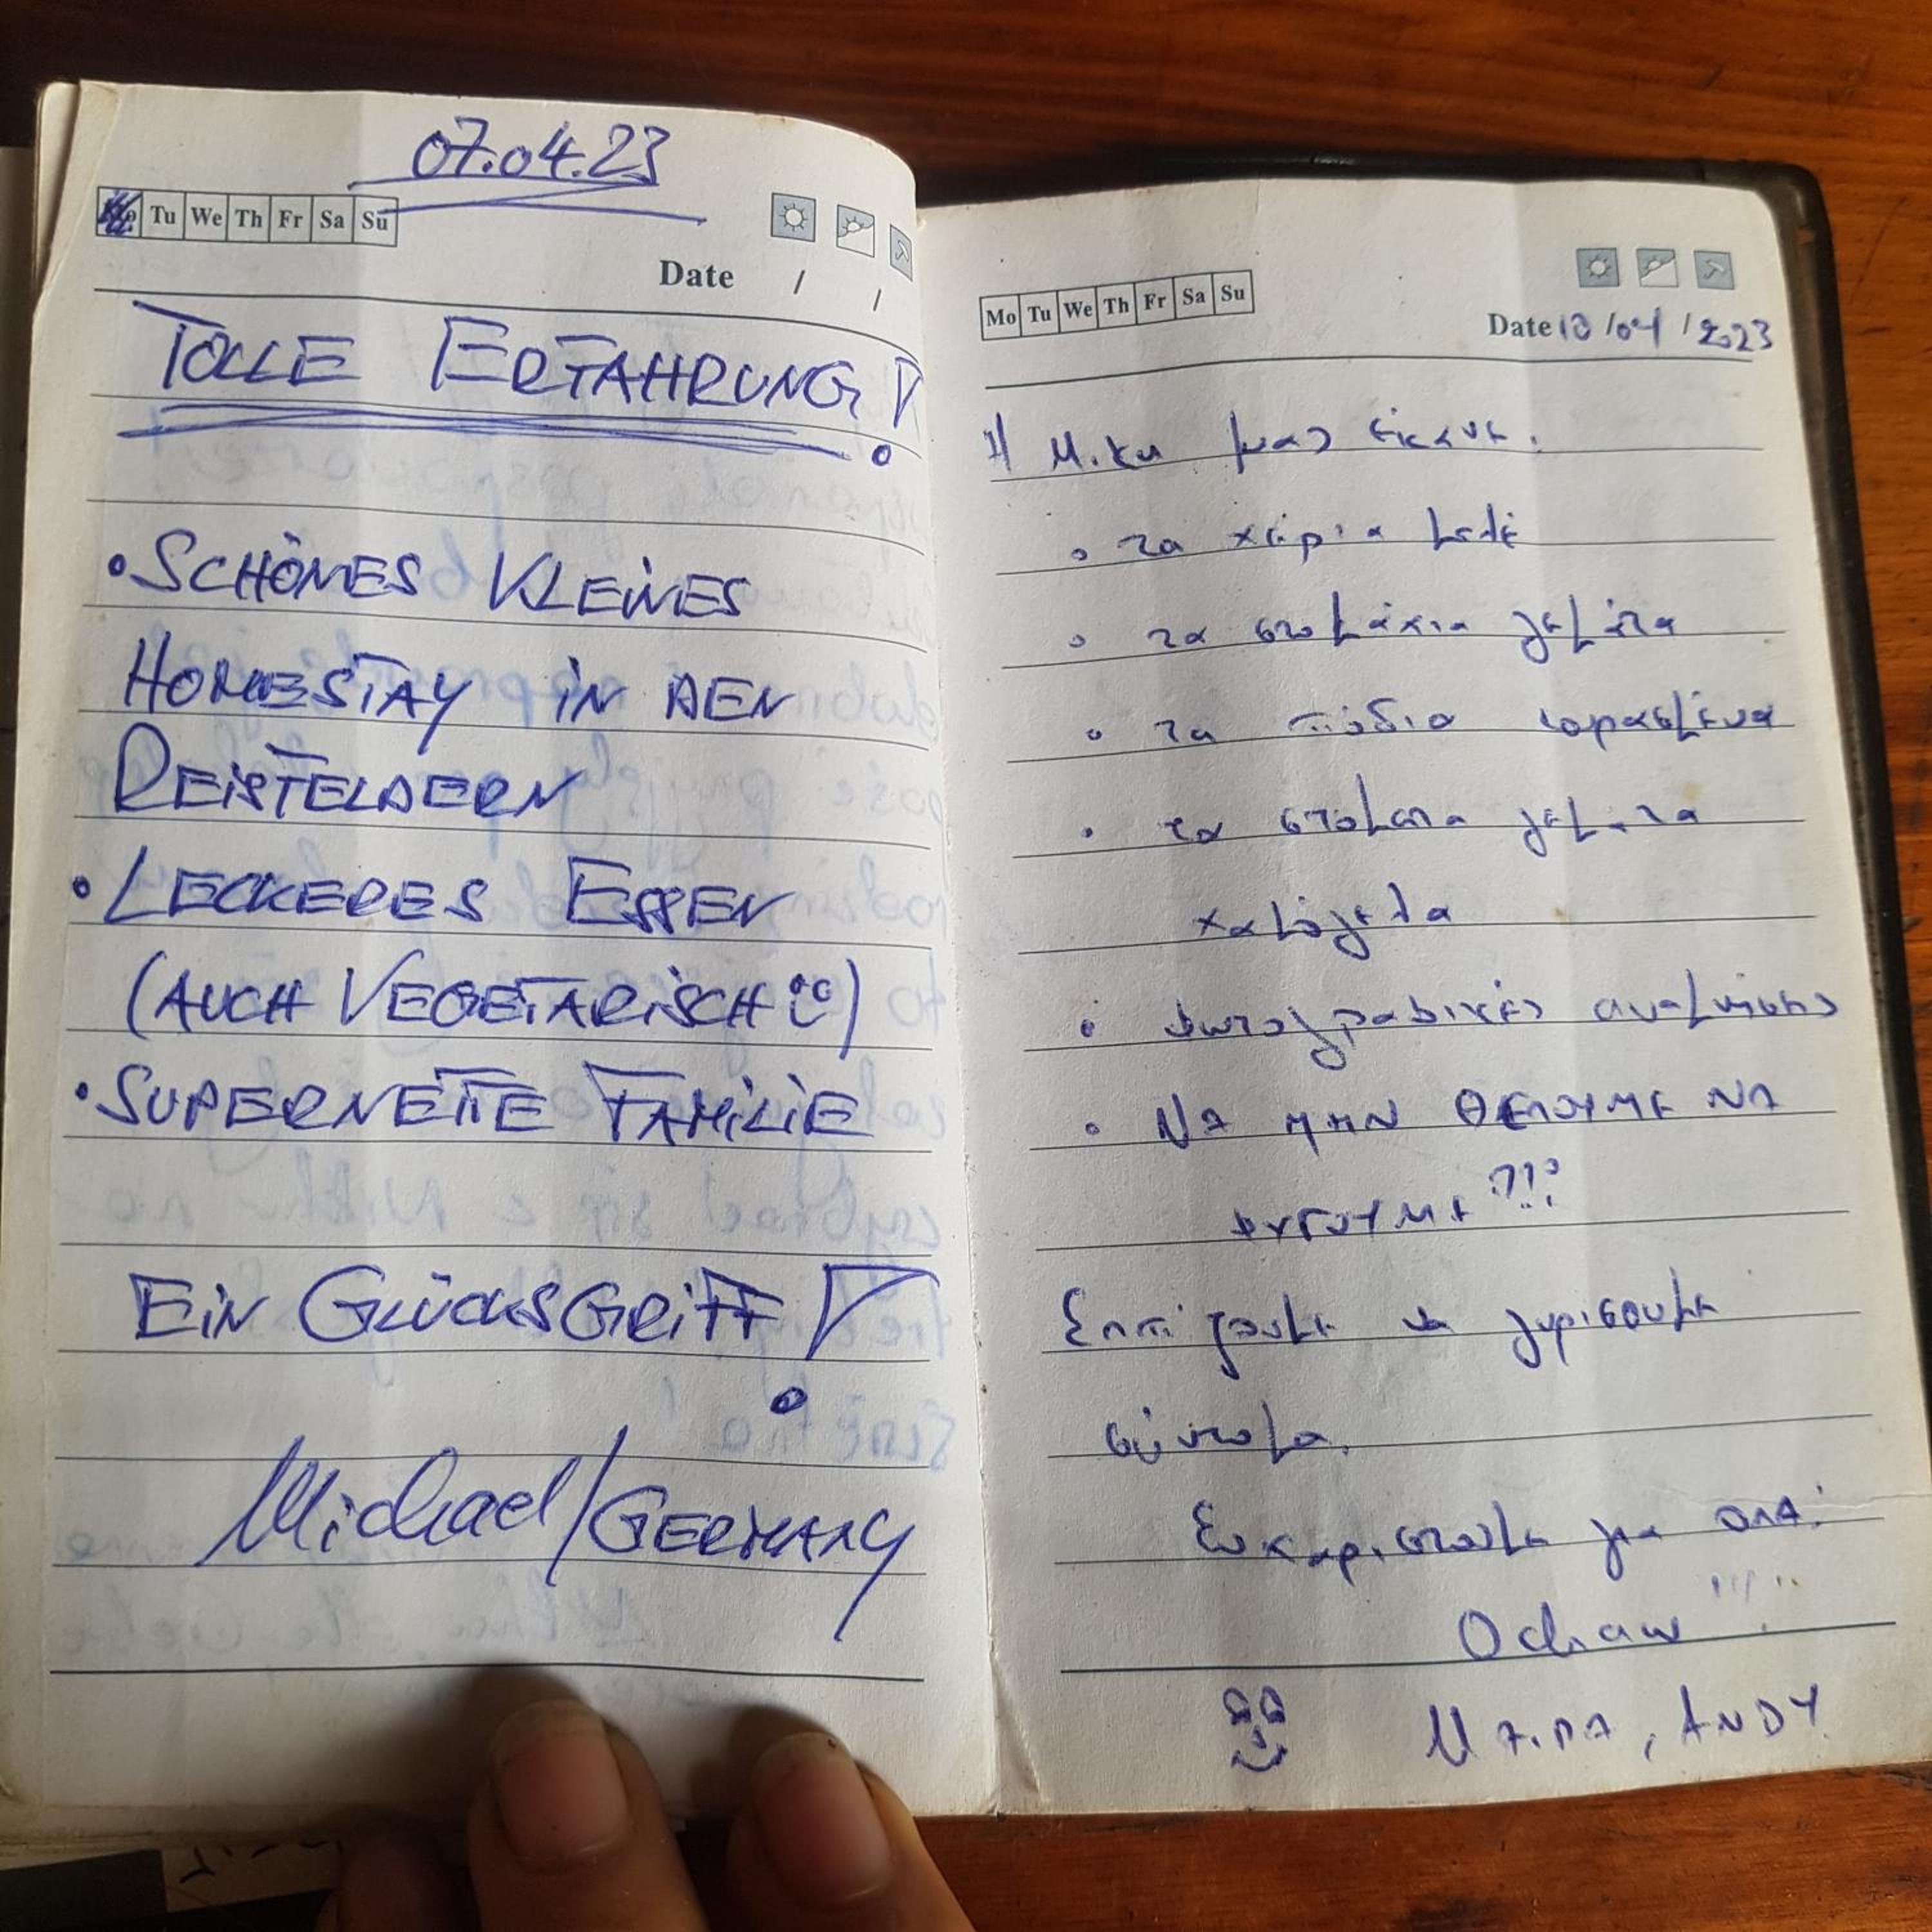 07.04.23
Mo Tu We Th Fr Sa Su
Date / /
TOLLE ERFAHRUNG!
• SCHÖNES KLEINES
HOMESTAY IN DEN
REISFELDERN
• LECKERES ESSEN
(AUCH VEGETARISCH :))
• SUPERNETTE FAMILIE
EIN GLÜCKSGRIFF!
Michael/GERMANY
Mo Tu We Th Fr Sa Su
Date 10/04/2023
Η μας έκανε:
• τα χέρια μπλέ
• τα στομάχια γεμάτα
• τα πόδια
• τα στόματα γεμάτα
χαμόγελα
• φωτογραφικές αναμνήσεις
• ΝΑ ΜΗΝ ΘΕΛΟΥΜΕ ΝΑ
ΦΥΓΟΥΜΕ ?!?
Ελπίζουμε να γυρίσουμε
σύντομα.
Ευχαριστούμε για όλα!
, ANDY